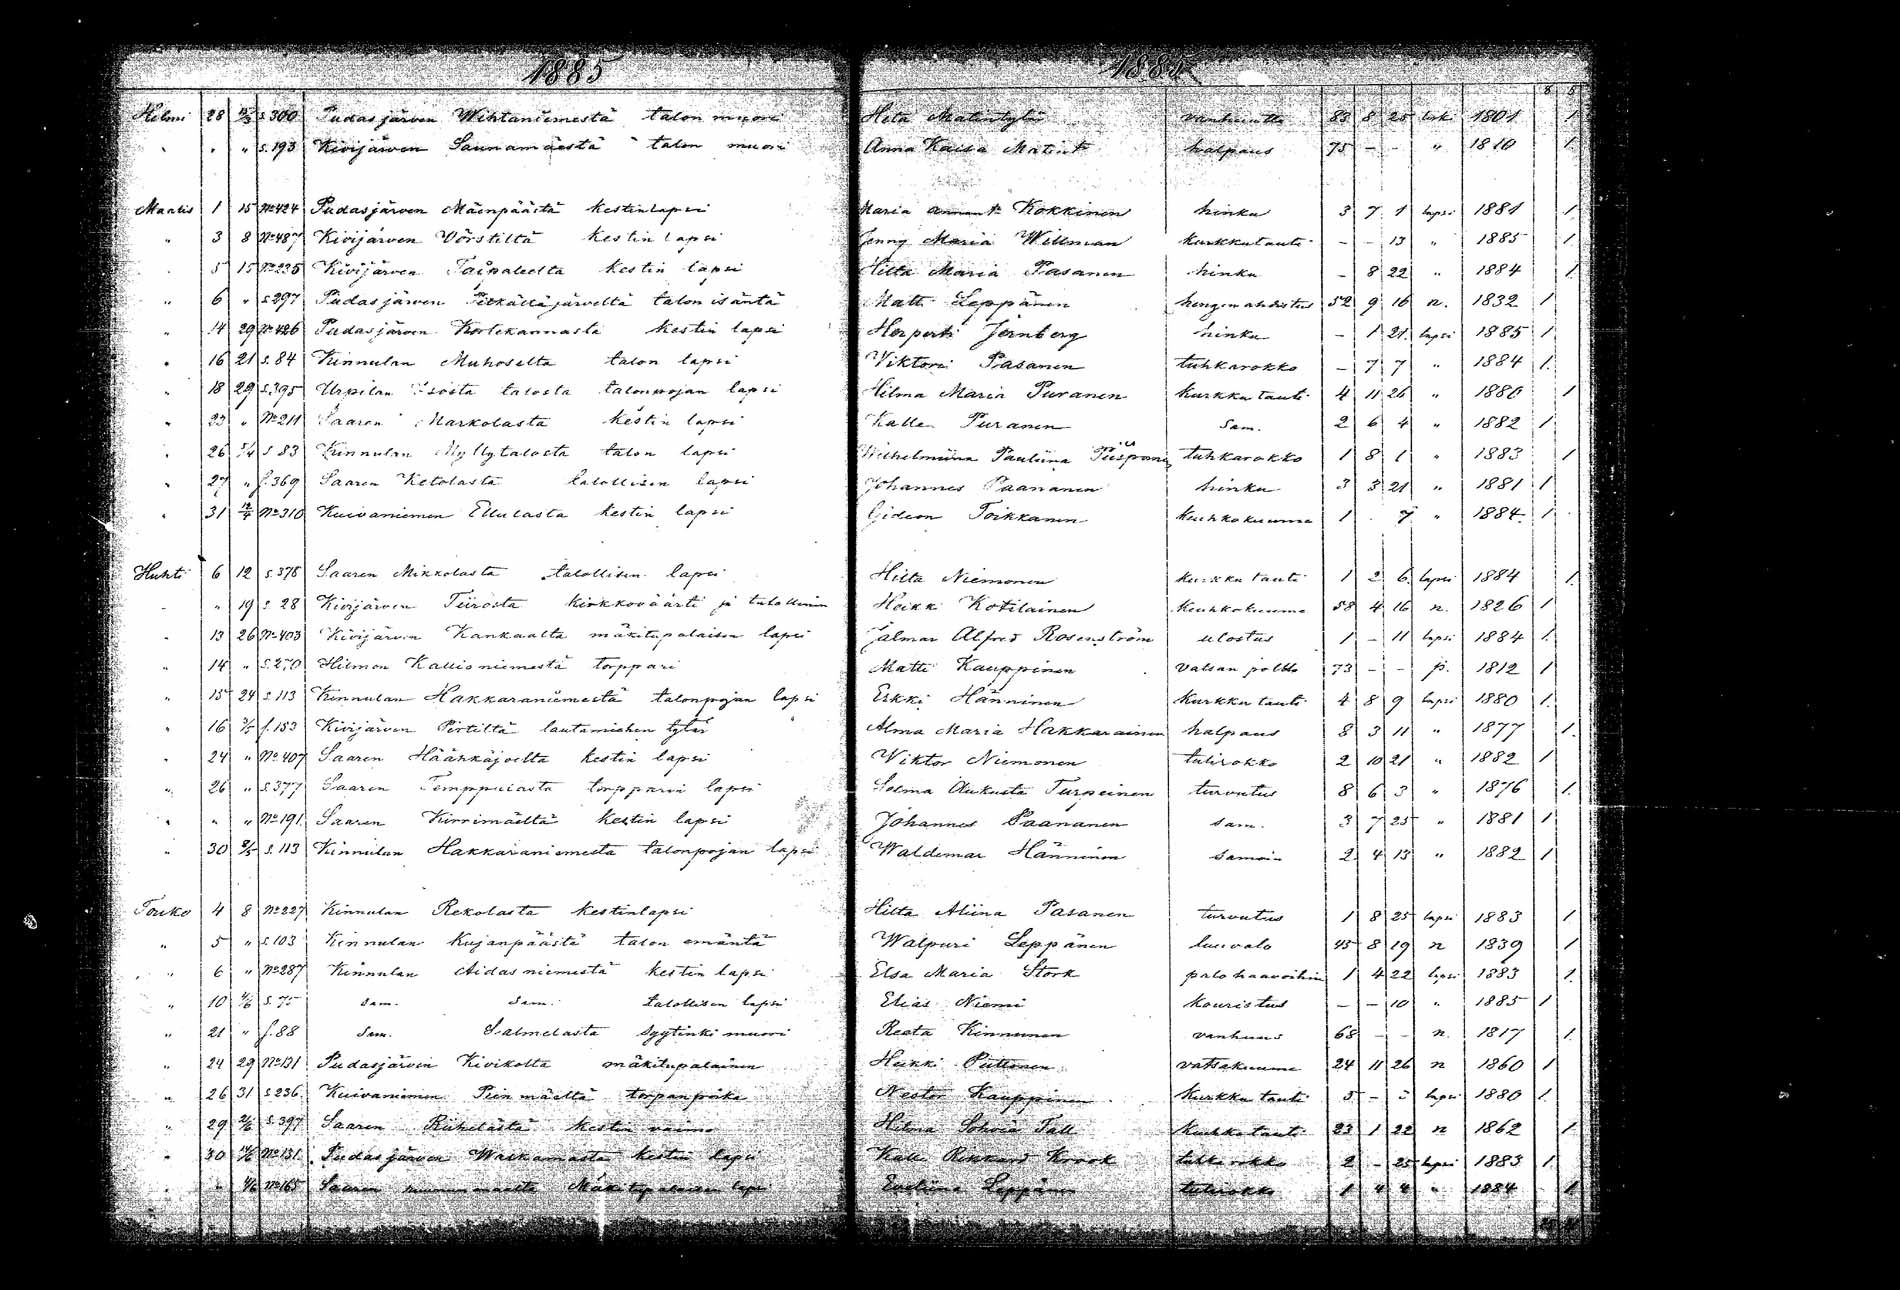 1885 1885
8 5
Helmi 28 15/3 s.300 Pudasjärven Wihtaniemestä talon muori Heta Matintytär vanhuutta 83 8 25 lesk 1801 1
" " " s.193 Kivijärven Saunamäestä talon muori Anna Kaisa Matint halpaus 75 - - " 1810 1.
Maalis 1 15 No 424 Pudasjärven Mäenpäästä kestinlapsi Maria Kokkinen hinku 3 7 1 lapsi 1881 1
" 3 8 No 487 Kivijärven Vörstiltä kestin lapsi Jenny Maria Willman kurkkutauti - - 13 " 1885 1
" 5 15 No 235 Kivijärven Taipaleelta kestin lapsi Hilta Maria Pasanen hinku - 8 22 " 1884 1
" 6 " s.297 Pudasjärven Pitkältäjärveltä talon isäntä Matti Leppänen hengenahdistus 52 9 16 n. 1832 1
" 14 29 No 426 Pudasjärven Kortekannasta kestin lapsi Herperti Jernberg hinku - 1 21. lapsi 1885 1
" 16 21 s.84 Kinnulan Muhoselta talon lapsi Viktori Pasanen tuhkarokko - 7 7 " 1884 1.
" 18 29 s.395 Urpilan Isosta talosta talonpojan lapsi Hilma Maria Puranen kurkku tauti 4 11 26 " 1880 1
" 23 " No 211 Saaren Markolasta kestin lapsi Kalle Puranen sam. 2 6 4 " 1882 1
" 26 5/4 s 83 Kinnulan Myllytalosta talon lapsi Wilhelmiina Pauliina Piispanen tuhkarokko 1 8 1 " 1883 1
" 27 " s.369 Saaren Ketolasta talollisen lapsi Johannes Paananen hinku 3 3 21 " 1881 1
" 31 12/4 No 310 Kuivaniemen Ellulasta kestin lapsi Gideon Toikkanen keuhkokuume 1 . 7 " 1884. 1
Huhti 6 12 s.378 Saaren Mikkolasta talollisen lapsi Hilta Niemonen kurkku tauti 1 2 6. lapsi 1884 1.
" " 19 s. 28 Kivijärven Tiirosta kirkkoväärti ja talollinen Heikki Kotilainen Keuhkokuume 58 4 16 n. 1826 1
" 13 26 No 403 Kivijärven Kankaalta mäkitupalaisen lapsi Jalmar Alfred Rosenström ulostus 1 - 11 lapsi 1884 1.
" 14 " s.270 Hilmon Kallioniemestä torppari Matti Kauppinen vatsan poltto 73 - - p. 1812 1
" 15 24 s.113 Kinnulan Hakkaraniemestä talonpojan lapsi Erkki Hänninen kurkku tauti 4 8 9 lapsi 1880 1.
" 16 3/5 s.153 Kivijärven Pirtiltä lautamiehen tytär Alma Maria Hakkarainen halpaus 8 3 11 " 1877 1.
" 24 " No 407 Saaren Häähkäjoelta kestin lapsi Wiktor Niemonen tulirokko 2 10 21 " 1882 1
" 26 " s.377 Saaren Temppulasta torpparin lapsi Selma Aukusta Turpeinen turvotus 8 6 3 " 1876 1.
" " " No 191. Saaren Kirrimäeltä kestin lapsi Johannes Paananen sam. 3 7 25 " 1881 1
" 30 8/5 s.113 Kinnulan Hakkaraniemestä talonpojan lapsi Waldemar Hänninen samoin 2 4 13 " 1882 1
Touko 4 8 No 227 Kinnulan Rekolasta kestinlapsi Hilta Aliina Pasanen turvotus 1 8 25 lapsi 1883 1
" 5 " s.103 Kinnulan Kujanpäästä talon emäntä Walpuri Leppänen luuvalo 45 8 19 n 1839 1
" 6 " No 287 Kinnulan Aidasniemestä kestin lapsi Elsa Maria Stork palohaavoihin 1 4 22 lapsi 1883 1.
" 10 s.75 sam. sam. talollisen lapsi Elias Niemi kouristus - - 10 " 1885 1
" 21 " s.88 sam. Salmelasta syytinki muori Reeta Kinnunen vanhuus 68 - - n. 1817 1.
" 24 29 No 131 Pudasjärven Kivikolta mäkitupalainen Heikki Puttonen vatsakuume 24 11 26 n 1860 1
" 26 31 s.236 Kuivaniemen Pienmäeltä torpanpoika Nestor Kauppinen kurkku tauti 5 - lapsi 1880 1.
" 29 s.397 Saaren Riihelästä kestin vaimo Hilma Tall keuhkotauti 23 1 22 n 1862 1
" 30 No 131. Pudasjärven kestin lapsi Kalle Rikkard Krook 2 - 25 lapsi 1883 1
" " No 165 Saaren Mäkitupalaisen lapsi Eveliina Leppänen tulirokko 1 4 4 " 1884 1